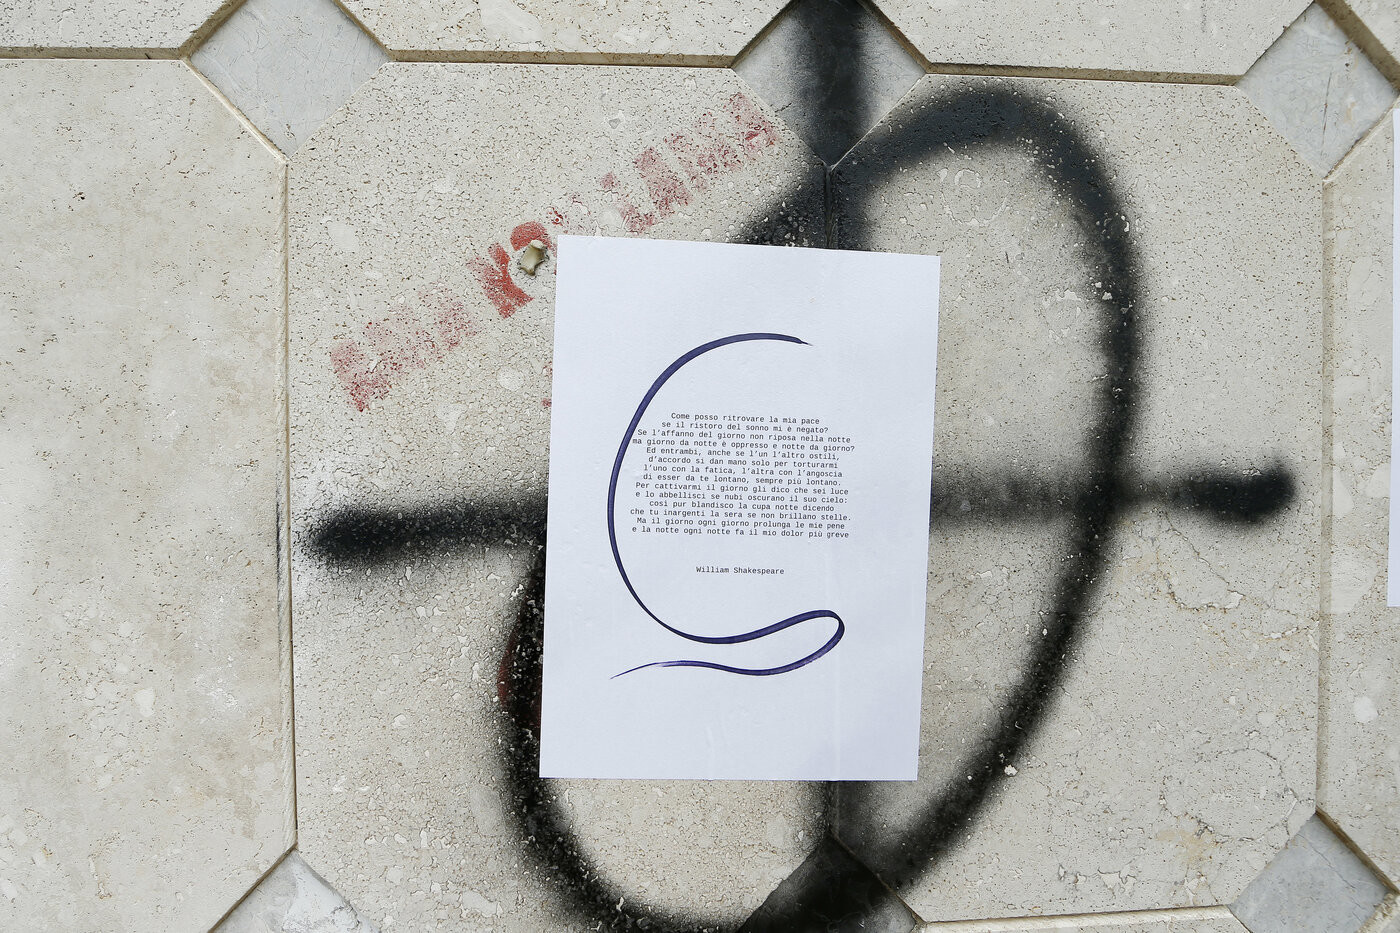 Come posso ritrovare la mia pace
se il ristoro del sonno mi è negato?
Se l'affanno del giorno non riposa nella notte
ma giorno da notte è oppresso e notte da giorno?
Ed entrambi, anche se l'un l'altro ostili,
d'accordo si dan mano solo per torturarmi
l'uno con la fatica, l'altra con l'angoscia
di esser da te lontano, sempre più lontano.
Per cattivarmi il giorno gli dico che sei luce
e lo abbellisci se nubi oscurano il suo cielo:
così pur blandisco la cupa notte dicendo
che tu inargenti la sera se non brillano stelle.
Ma il giorno ogni giorno prolunga le mie pene
e la notte ogni notte fa il mio dolor più greve
William Shakespeare